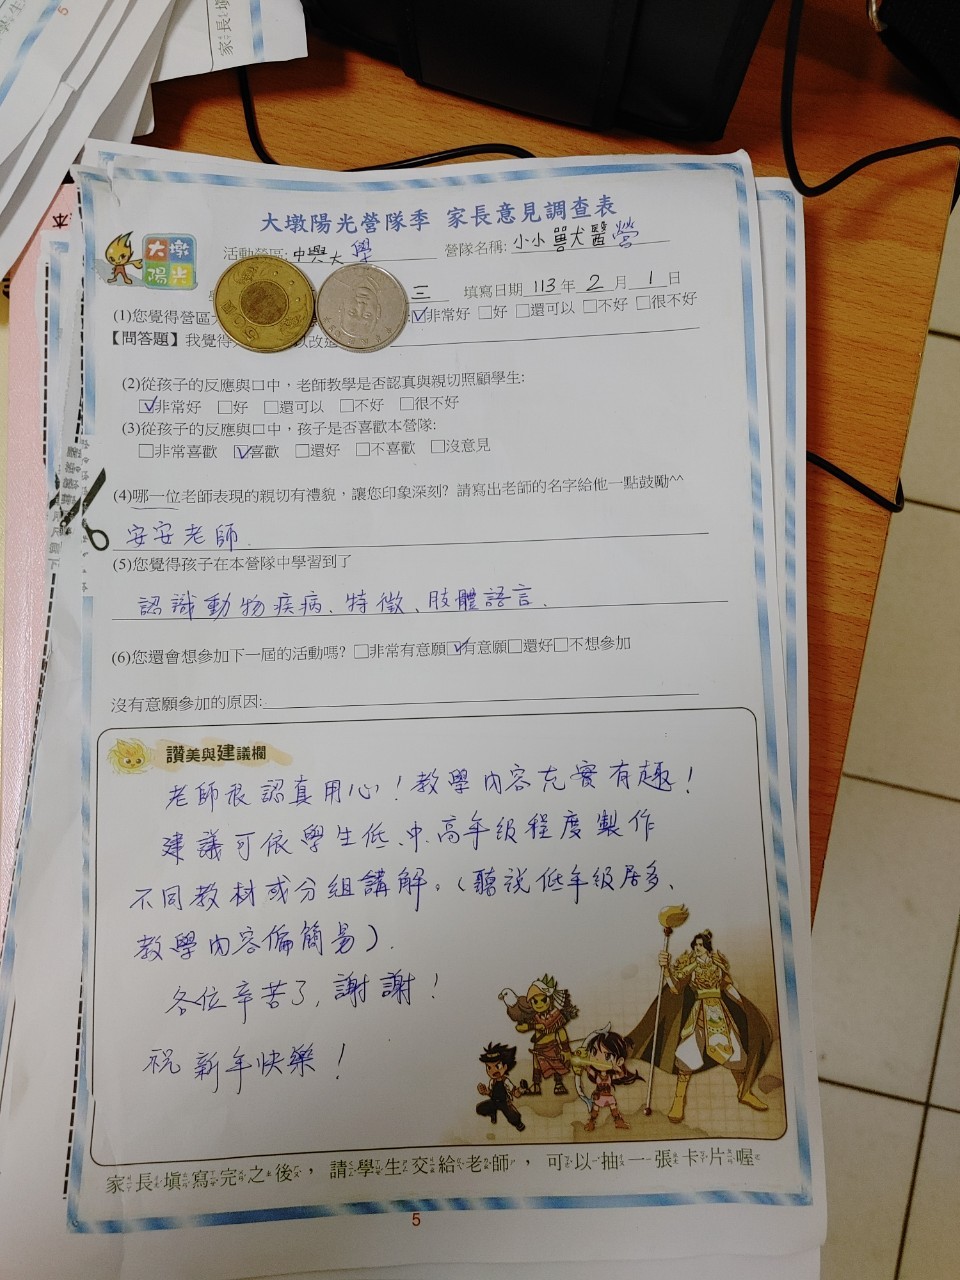 家長填
大墩陽光營隊季 家長意見調查表
大墩
陽光
活動營區: 中興大學 營隊名稱: 小小獸犬醫營
三 填寫日期 113 年 2 月 1 日
(1)您覺得營區 ☑非常好 □好 □還可以 □不好 □很不好
【問答題】我覺得 以改進
(2)從孩子的反應與口中，老師教學是否認真與親切照顧學生:
☑非常好 □好 □還可以 □不好 □很不好
(3)從孩子的反應與口中，孩子是否喜歡本營隊:
□非常喜歡 ☑喜歡 □還好 □不喜歡 □沒意見
(4)哪一位老師表現的親切有禮貌，讓您印象深刻? 請寫出老師的名字給他一點鼓勵^^
安安老師.
(5)您覺得孩子在本營隊中學習到了
認識動物疾病、特徵、肢體語言.
(6)您還會想參加下一屆的活動嗎? □非常有意願☑有意願□還好□不想參加
沒有意願參加的原因:
讚美與建議欄
老師很認真用心！教學內容充實有趣！
建議可依學生低、中、高年級程度製作
不同教材或分組講解。(聽說低年級居多、
教學內容偏簡易).
各位辛苦了, 謝謝！
祝 新年快樂！
家長填寫完之後，請學生交給老師，可以抽一張卡片喔
5